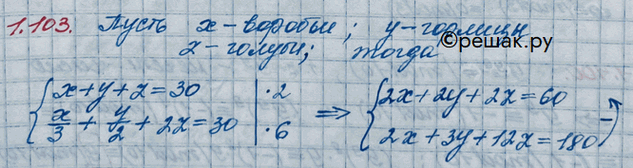 1.103. Пусть x - воробьи; y - горлицы
z - голуби; тогда
©решак.ру
{x+y+z=30 |·2 => {2x+2y+2z=60
{x/3 + y/2 + 2z=30 |·6 {2x+3y+12z=180 -